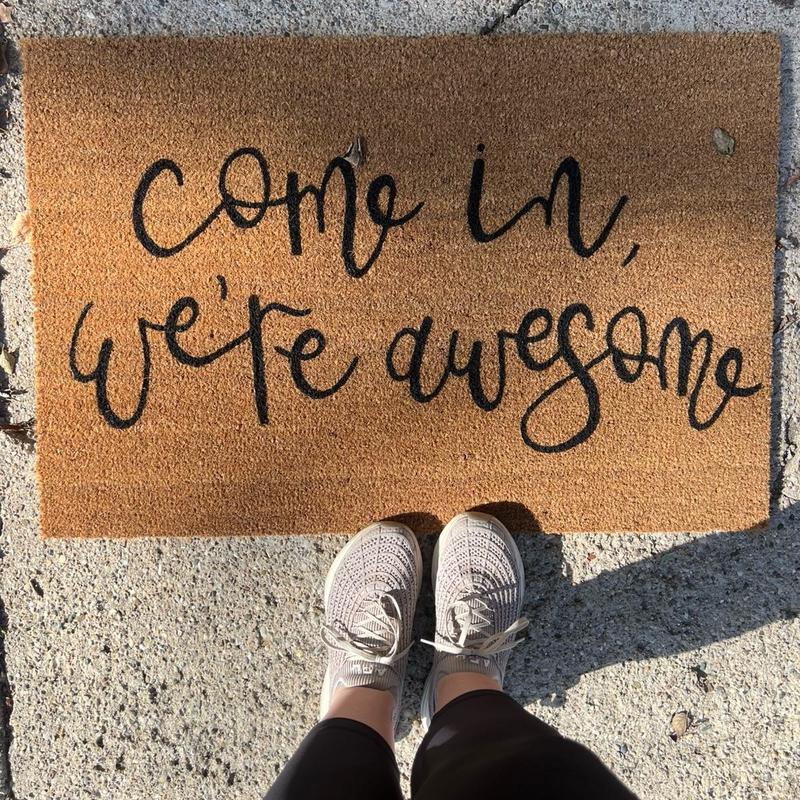 come in,
we're awesome